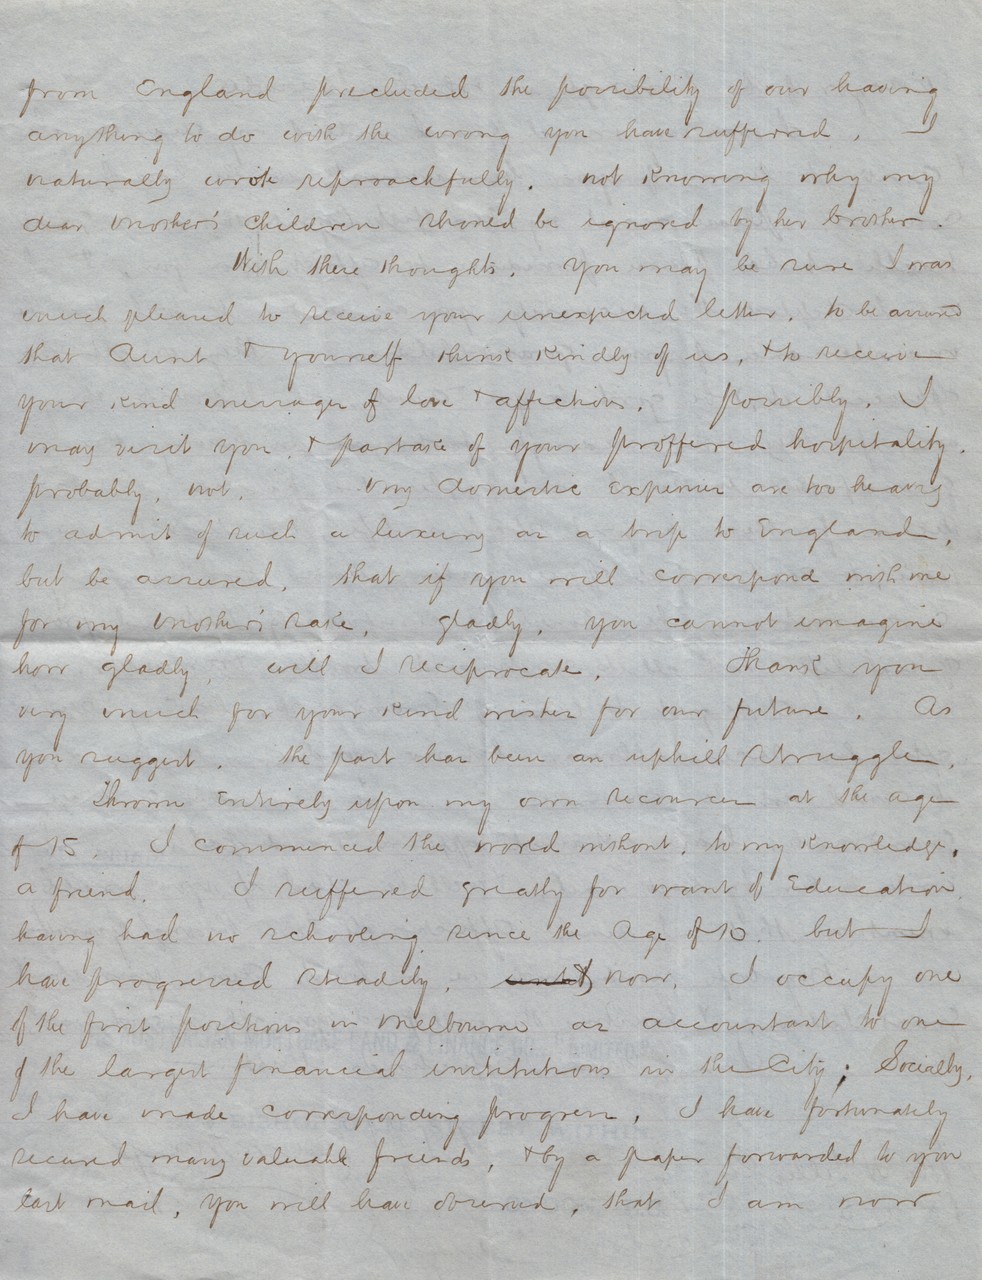 from England precluded the possibility of our having
anything to do with the wrong you have suffered. I
naturally wrote reproachfully. not knowing why my
dear Mother's children should be ignored by her brother.
With these thoughts. you may be sure I was
much pleased to receive your unexpected letter. to be assured
that Aunt & yourself think kindly of us, & to receive
your kind messages of love & affection. Possibly. I
may visit you, & partake of your proffered hospitality.
probably, not. My domestic expenses are too heavy
to admit of such a luxury as a trip to England,
but be assured, that if you will correspond with me
for my Mother's sake, gladly, you cannot imagine
how gladly, will I reciprocate. Thank you
very much for your kind wishes for our future. As
you suggest. the past has been an uphill struggle.
Thrown entirely upon my own resources at the age
of 15 I commenced the world without, to my knowledge,
a friend. I suffered greatly for want of Education
having had no schooling since the Age of 10. but I
have progressed steadily, until now, I occupy one
of the first positions in Melbourne as accountant to one
of the largest financial institutions in the City; Socially,
I have made corresponding progress, I have fortunately
secured many valuable friends, & by a paper forwarded to you
last mail, you will have observed, that I am now